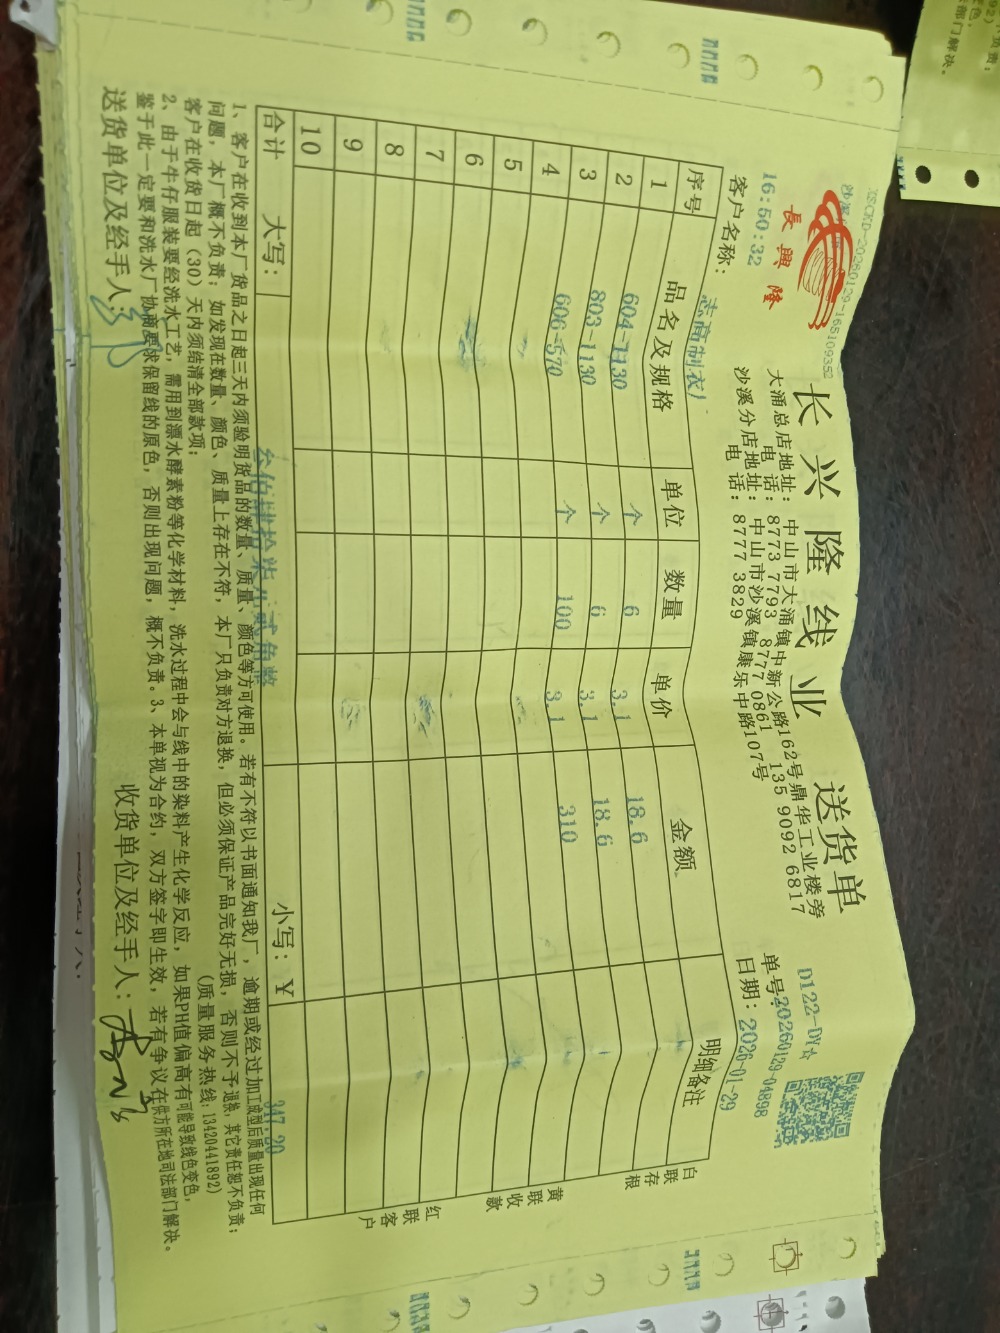 XSCKD-20260129-165109352
沙溪
長興隆
长兴隆线业 送货单
大涌总店地址：中山市大涌镇中新公路162号鼎华工业楼旁
电 话：8773 7793 8777 0861 135 9092 6817
沙溪分店地址：中山市沙溪镇康乐中路107号
电 话：8777 3829
D122-DY☆
单号：20260129-04898
16:50:32
客户名称：志高制衣厂
日期：2026-01-29
序号 品名及规格 单位 数量 单价 金额 明细备注
1 604-1130 个 6 3.1 18.6
2 803-1130 个 6 3.1 18.6
3 606-570 个 100 3.1 310
4
5
6
7
8
9
10
合计 大写：叁佰肆拾柒元贰角整 小写：￥347.20
白联存根
黄联收款
红联客户
1、客户在收到本厂货品之日起三天内须验明货品的数量、质量、颜色等方可使用。若有不符以书面通知我厂，逾期或经过加工成型后质量出现任何
问题，本厂概不负责；如发现在数量、颜色、质量上存在不符，本厂只负责对方退换，但必须保证产品完好无损，否则不予退换，其它责任恕不负责；
客户在收货日起（30）天内须结清全部款项； （质量服务热线：13420441892）
2、由于牛仔服装要经洗水工艺，需用到漂水酵素粉等化学材料，洗水过程中会与线中的染料产生化学反应，如果PH值偏高有可能导致线色变色，
鉴于此一定要和洗水厂协商要求保留线的原色，否则出现问题，概不负责。3、本单视为合约，双方签字即生效，若有争议在供方所在地司法部门解决。
送货单位及经手人： 收货单位及经手人：
92）
不负责；
变色，
部门解决。